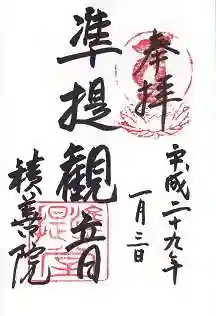 奉拝
平成二十九年
一月三日
準提觀音
積善院